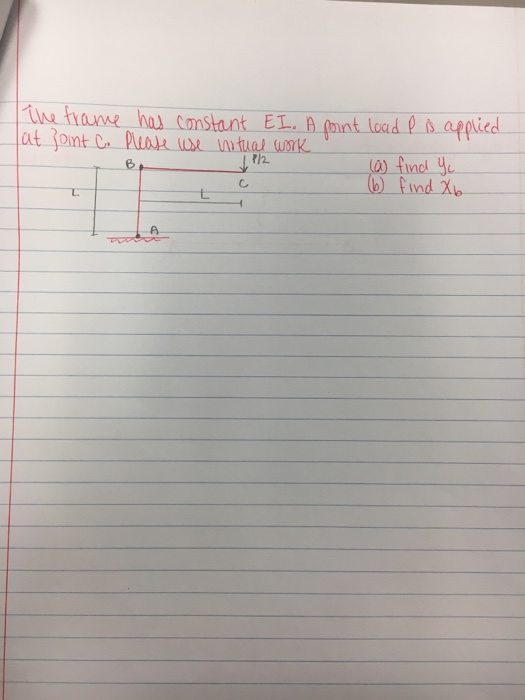 The frame has constant EI. A point load P is applied
at Joint C. Please use virtual work
B P/2 (a) find yc
L L C (b) find Xb
A